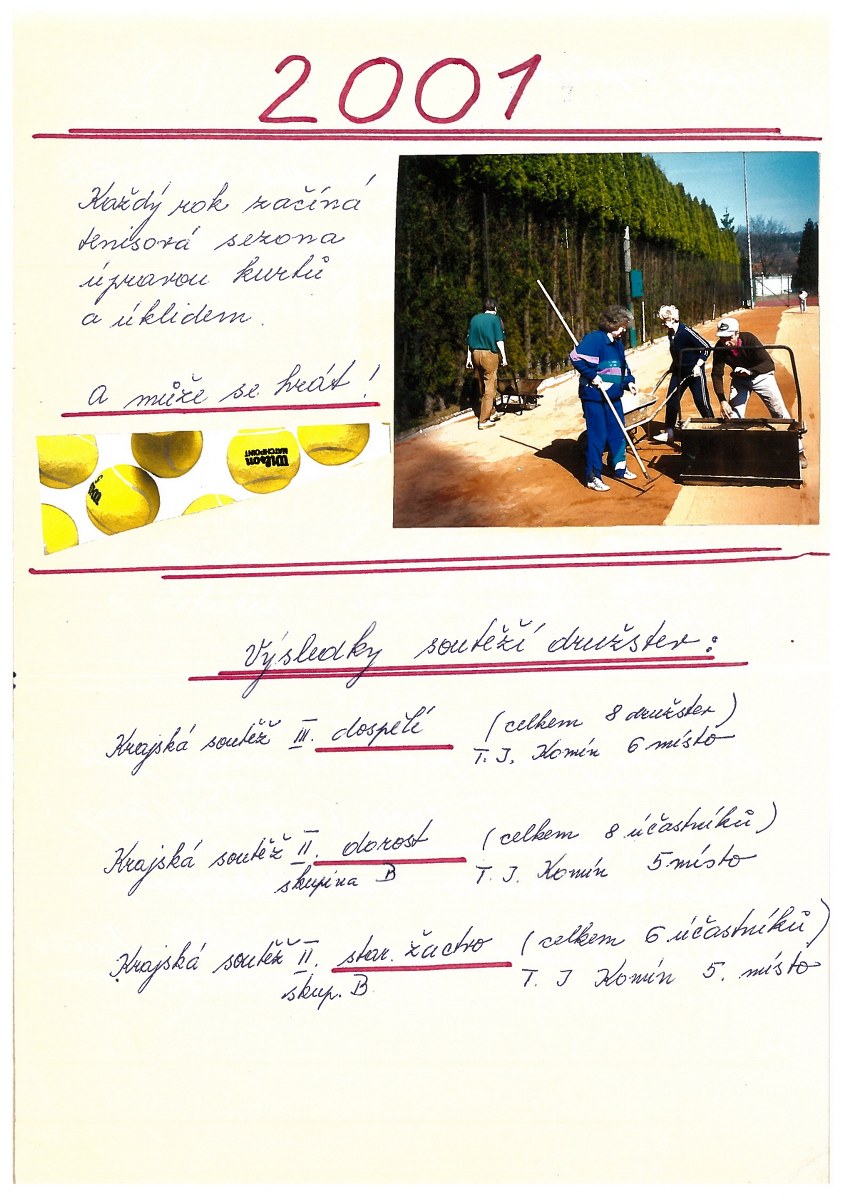 2001
Každý rok začíná
tenisová sezona
úpravou kurtů
a úklidem.
a může se hrát!
Wilson
MATCHPOINT
Výsledky soutěží družstev:
Krajská soutěž III. dospělí (celkem 8 družstev)
T. J. Komín 6 místo
Krajská soutěž II. dorost (celkem 8 účastníků)
skupina B T. J. Komín 5 místo
Krajská soutěž II. star. žactvo (celkem 6 účastníků)
skup. B T. J Komín 5. místo